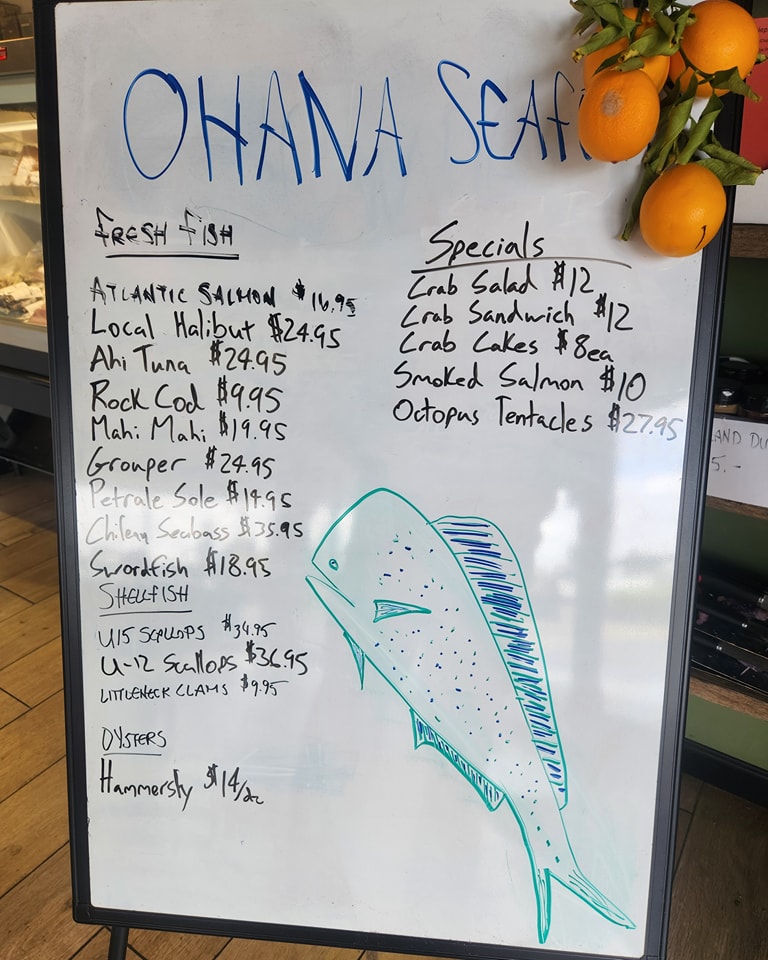 OHANA SEAF
FRESH FISH
ATLANTIC SALMON $16.95
Local Halibut $24.95
Ahi Tuna $24.95
Rock Cod $9.95
Mahi Mahi $19.95
Grouper $24.95
Petrale Sole $14.95
Chilean Seabass $35.95
Swordfish $18.95
SHELLFISH
U15 SCALLOPS $34.95
U-12 Scallops $36.95
LITTLENECK CLAMS $9.95
OYSTERS
Hammersly $14/
Specials
Crab Salad $12
Crab Sandwich $12
Crab Cakes $8ea
Smoked Salmon $10
Octopus Tentacles $27.95
AND DU
5.-